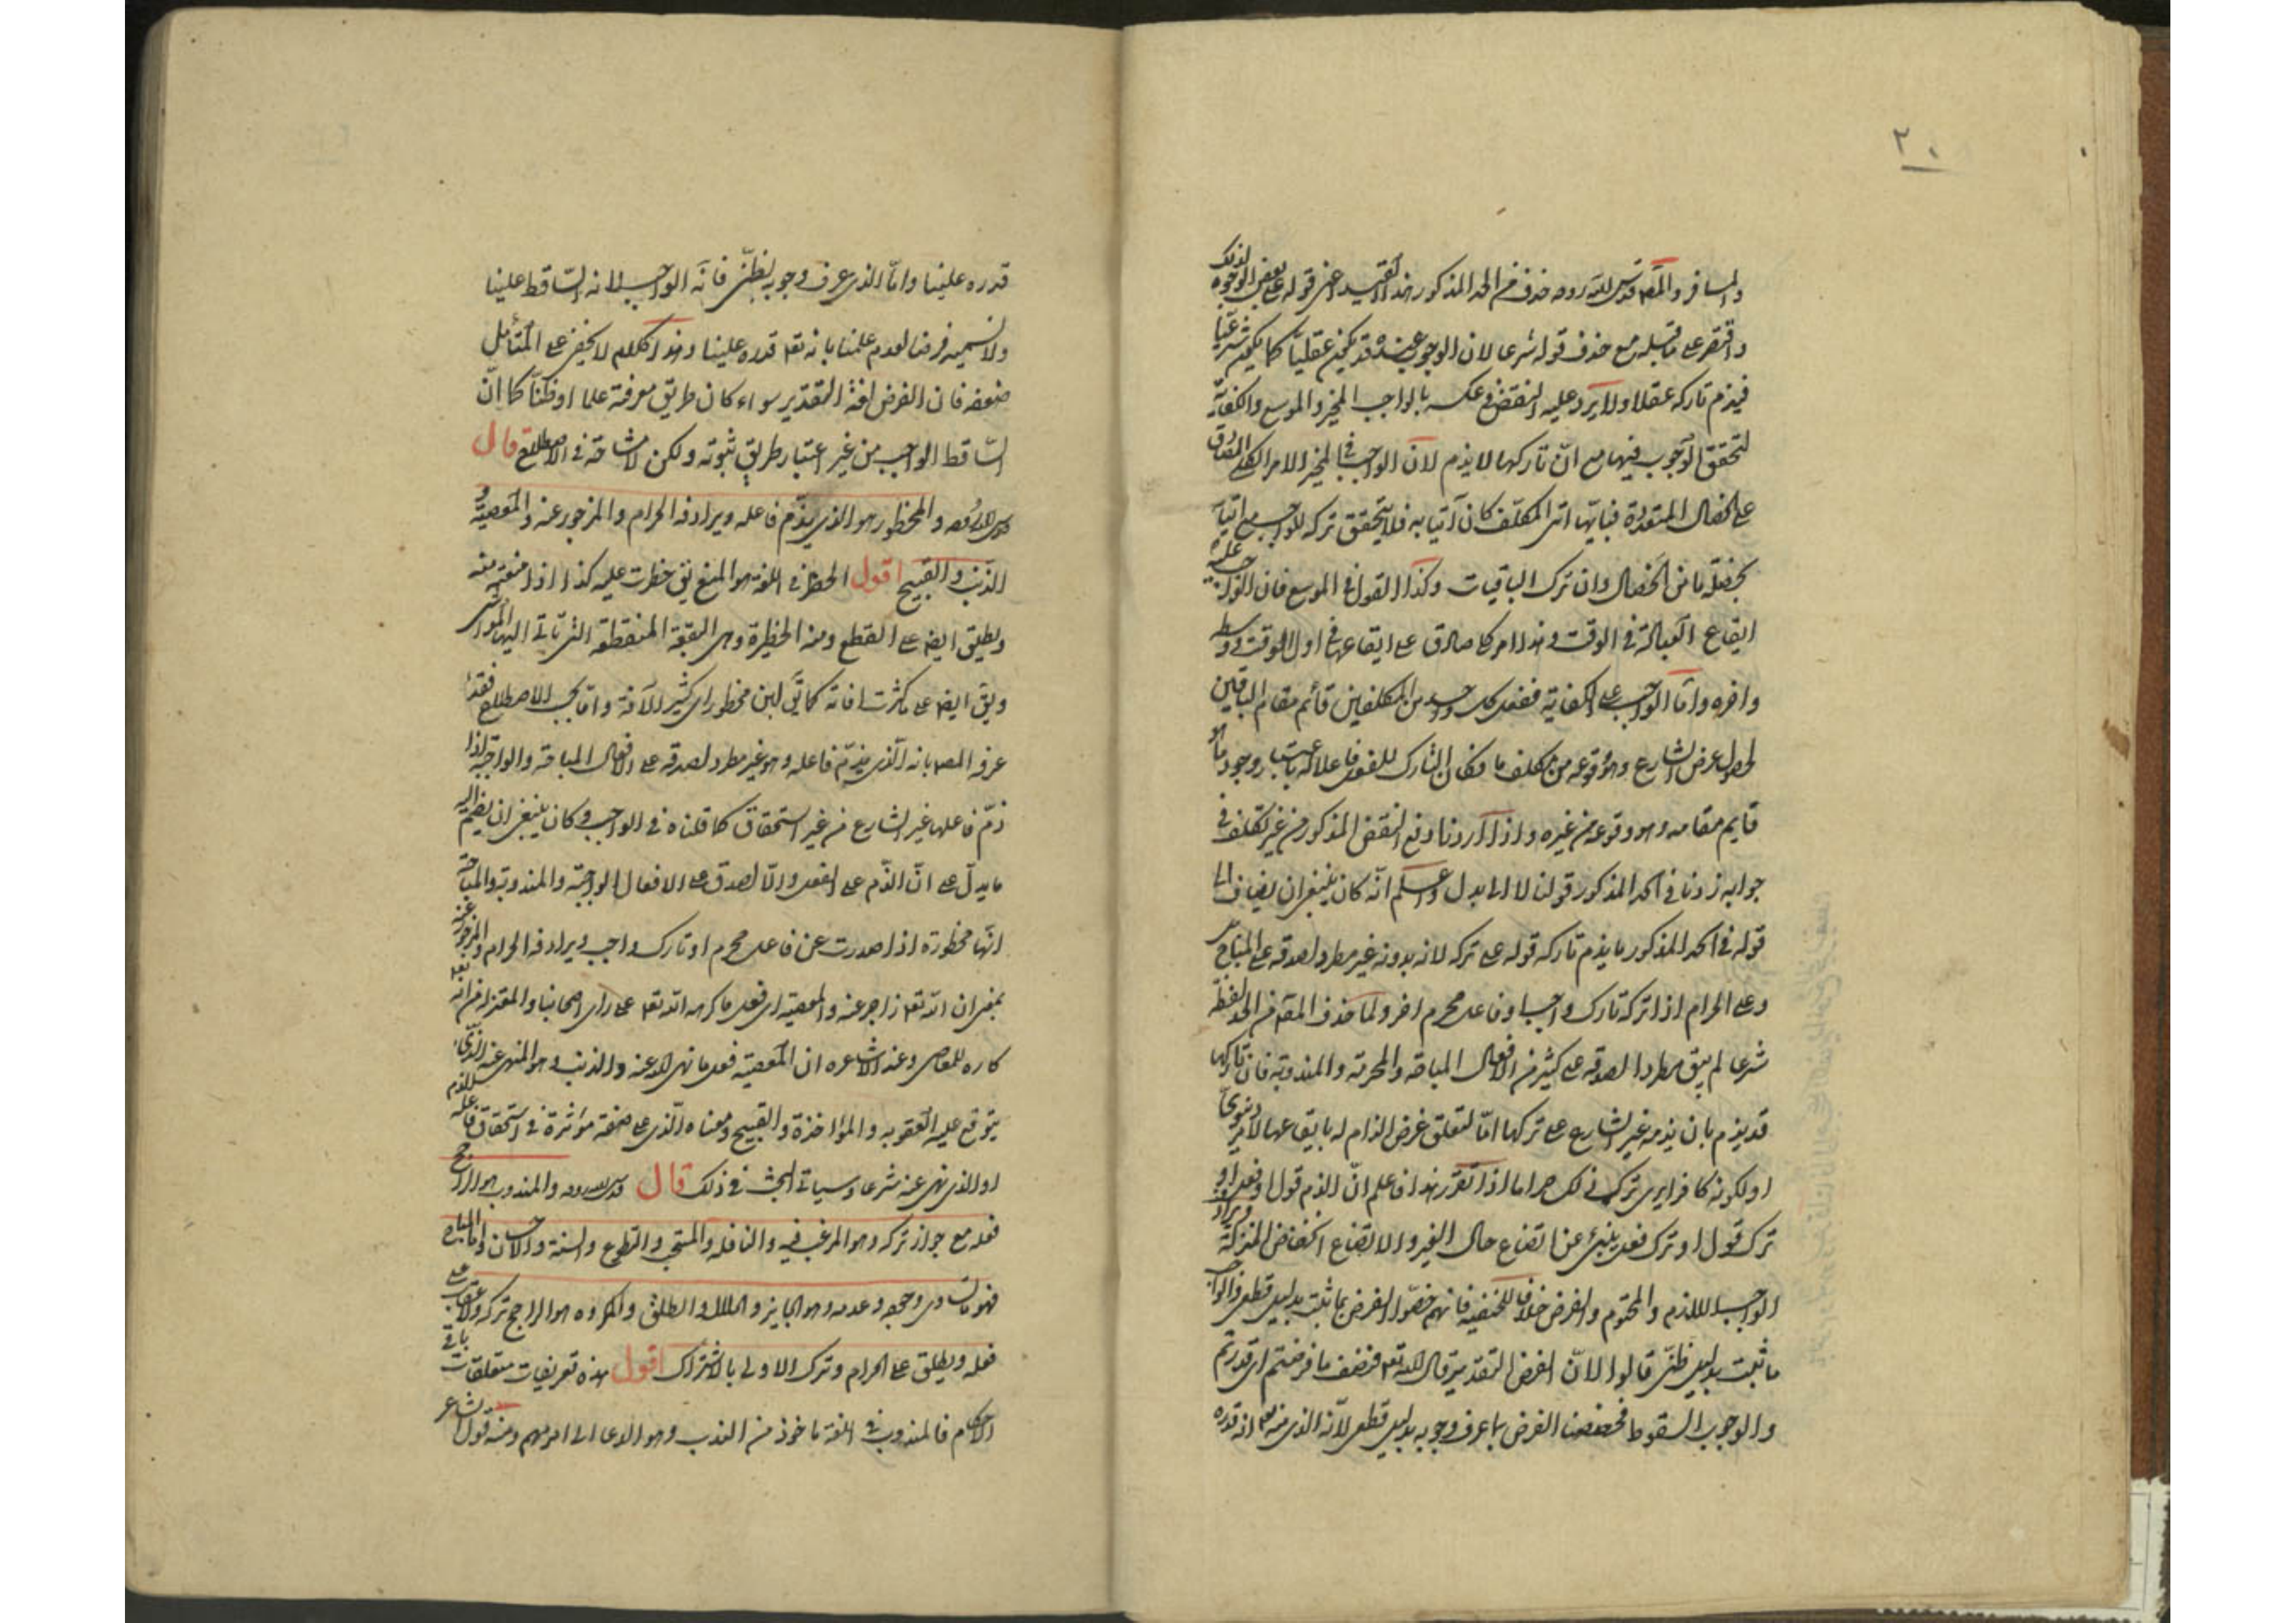 ٢٠
والمسافر والمص قدس الله روحه حذف من الحد المذكور هذا القيد اعنى قوله على بعض الوجوه لذلك
واقتصر على ما قبله مع حذف قوله شرعا لان الوجوب عنده قد يكون عقليا كما يكون شرعيا
فيذم تاركه عقلا ولا يرد عليه النقض فى عكسه بالواجب المخير والموسع والكفاية
لتحقق الوجوب فيها مع انّ تاركها لا يذم لانّ الواجب فى المخير الامر الكلى الصادق
على الخصال المتعددة فبايّها اتى المكلف كان آتيا به فلا يتحقق تركه للواجب مع اتيانه
بخصلة ما من الخصال وان ترك الباقيات وكذا القول فى الموسع فان الواجب عليه
ايقاع العبادة فى الوقت وهذا امر كلى صادق على ايقاعها فى اول الوقت ووسطه
واخره وامّا الواجب على الكفاية ففعل كل واحد من المكلفين قائم مقام الباقين
لحصول غرض الشارع وهو وقوعه من مكلف ما فكان التارك للفعل فاعلا له باعتبار وجود ما هو
قايم مقامه وهو وقوعه من غيره واذا اردنا دفع النقض المذكور من غير تكلف فى
جوابه زدنا فى الحد المذكور قولنا لا الى بدل واعلم انّه كان ينبغى ان يضاف الى
قوله فى الحد المذكور ما يذم تاركه قوله على تركه لانه بدونه غير مطرد لصدقه على المباح
وعلى الحرام اذا تركه تارك واجب او فاعل محرم اخر ولما حذف المص من الحد لفظة
شرعا لم يبق مطردا لصدقه على كثير من الافعال المباحة والمحرمة والمندوبة فان تاركها
قد يذم بان يذمه غير الشارع على تركها امّا لتعلق غرض الذام له بايقاعها لامر دنيوىّ
او لكونه كافرا يرى ترك ذلك حراما اذا تقرر هذا فاعلم انّ الذم قول او فعل او
ترك قول او ترك فعل ينبئ عن اتضاع حال الغير والاتضاع انخفاض المنزلة ويرادف
الواجب اللازم والمحتوم والفرض خلافا للحنفية فانهم خصّوا الفرض بما ثبت بدليل قطعى والواجب
ما ثبت بدليل ظنّى قالوا لانّ الفرض التقدير قال الله تعه فنصف ما فرضتم اى قدرتم
والوجوب السقوط فخصصنا الفرض بما عرف وجوبه بدليل قطعى لانّه الذى منه تعه انه قدره
قدره علينا وامّا الذى عرف وجوبه بظنّى فانّه الواجب لانه الساقط علينا
ولا نسميه فرضا لعدم علمنا بانه تعه قدره علينا وهذا الكلام لا يخفى على المتأمل
ضعفه فان الفرض لغة التقدير سواء كان طريق معرفته علما او ظنّا كما انّ
الساقط الواجب من غير اعتبار طريق ثبوته ولكن لا مشاحة فى الاصطلاح قال
قدس الله روحه والمحظور هو الذى يذم فاعله ويرادفه الحرام والمزجور عنه والمعصية و
الذنب والقبيح اقول الحظر فى اللغة هو المنع يق حظرت عليه كذا اذا منعته منه
ويطلق ايضا على القطع ومنه الحظيرة وهى البقعة المنقطعة التى تاتى اليها المواشى
ويق ايضا على ما كثرت افاته كما يق لبن محظور اى كثير الآفة وامّا بحسب الاصطلاح فقد
عرفه المصه بانه الّذى يذمّ فاعله وهو غير مطرد لصدقه على الافعال المباحة والواجبة اذا
ذمّ فاعلها غير الشارع من غير استحقاق كما قلناه فى الواجب وكان ينبغى ان يضم اليه
ما يدلّ على انّ الذّم على الفعل والّا لصدق على الافعال الواجبة والمندوبة والمباحة
انّها محظورة اذا صدرت عن فاعل محرم او تارك واجب ويرادفه الحرام والمزجور عنه
بمعنى ان الله تعه زاجر عنه والمعصية اى فعل ما كرهه الله تعه على راى اصحابنا والمعتزلة من انه تعه
كاره للمعاصى وعند الاشاعره ان المعصية فعل ما نهى الله عنه والذنب وهو المنهى عنه الذى
يتوقع عليه العقوبه والمؤاخذة والقبيح ومعناه الّذى على صفة مؤثرة فى استحقاق فاعله للذم
او الذى نهى عنه شرعا وسياتى البحث فى ذلك قال قدس الله روحه والمندوب هو الراجح
فعله مع جواز تركه وهو المرغب فيه والنافله والمستحب والتطوع والسنة والاحسان وامّا المباح
فهو ما تساوى وجوده وعدمه وهو الجايز والحلال والطلق والمكروه هو الراجح تركه ولا عقاب على
فعله ويطلق على الحرام وترك الاولى بالاشتراك اقول هذه تعريفات متعلقات باقى
الاحكام فالمندوب فى اللغة ماخوذ من الندب وهو الدعا الى امر مهم ومنه قول الشاعر